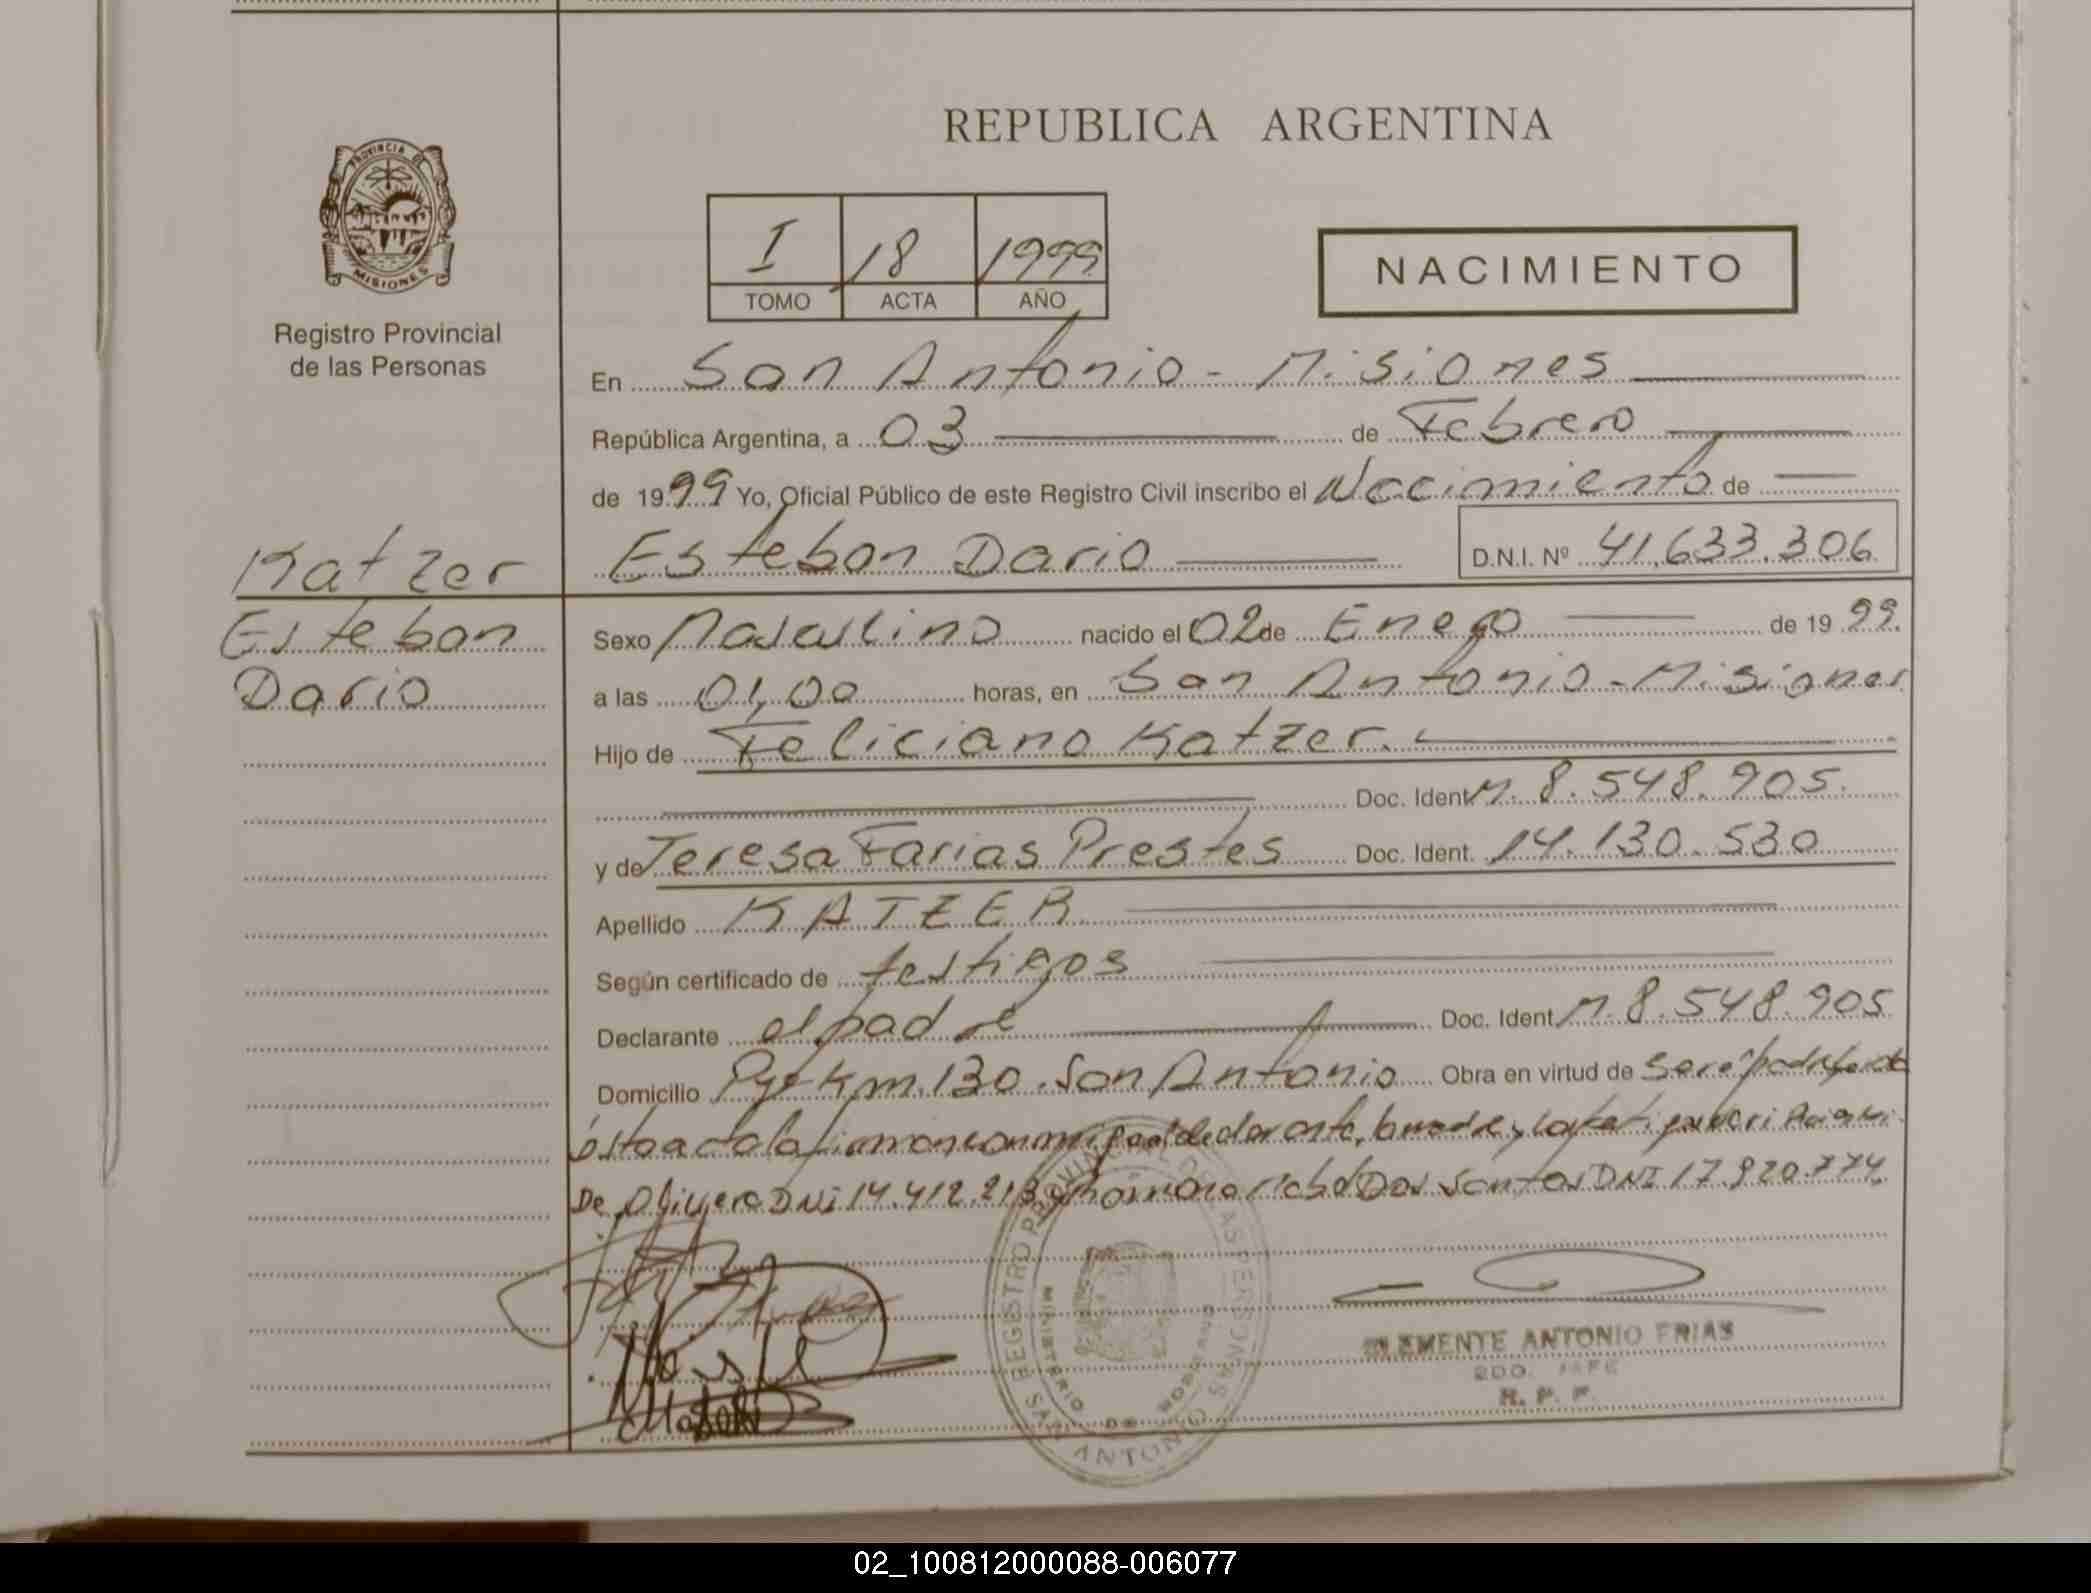 REPUBLICA ARGENTINA
PROVINCIA DE
MISIONES
Registro Provincial
de las Personas
I 18 1999
TOMO ACTA AÑO
NACIMIENTO
En San Antonio - Misiones
República Argentina, a 03 de Febrero
de 1999 Yo, Oficial Público de este Registro Civil inscribo el Nacimiento de
Esteban Dario D.N.I. Nº 41.633.306
Katzer
Esteban
Dario
Sexo Masculino nacido el 02 de Enero de 1999.
a las 01,00 horas, en San Antonio - Misiones
Hijo de Feliciano Katzer.
Doc. Ident M. 8.548.905.
y de Teresa Farias Prestes Doc. Ident. 14.130.530
Apellido KATZER
Según certificado de testigos
Declarante el padre Doc. Ident M. 8.548.905
Domicilio Pje Km. 130. San Antonio Obra en virtud de ser el padre
ésta acta la firman conmigo el declarante, la madre y
De Olivera DNI 14.412.213 y Dos Santos DNI 17.920.774.
REGISTRO PROVINCIAL DE LAS PERSONAS
MINISTERIO DE GOBIERNO
SAN ANTONIO
CLEMENTE ANTONIO FRIAS
2DO. JEFE
R. P. P.
02_100812000088-006077